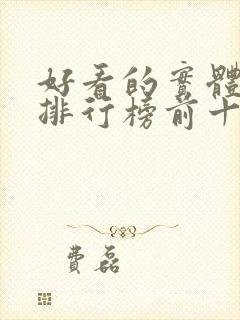 好看的實體
排行榜前十
費磊